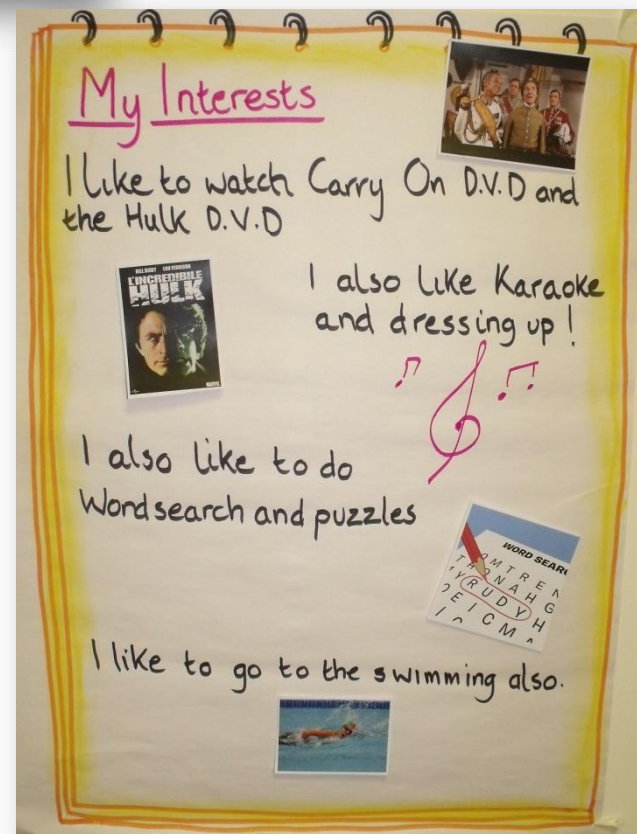 My Interests
I like to watch Carry On D.V.D and
the Hulk D.V.D
BILL BIXBY LOU FERRIGNO
L'INCREDIBILE
HULK
I also like Karaoke
and dressing up!
I also like to do
Wordsearch and puzzles
WORD SEAR
OMTREN
TRONAHG
YRUDYH
EICM
I like to go to the swimming also.